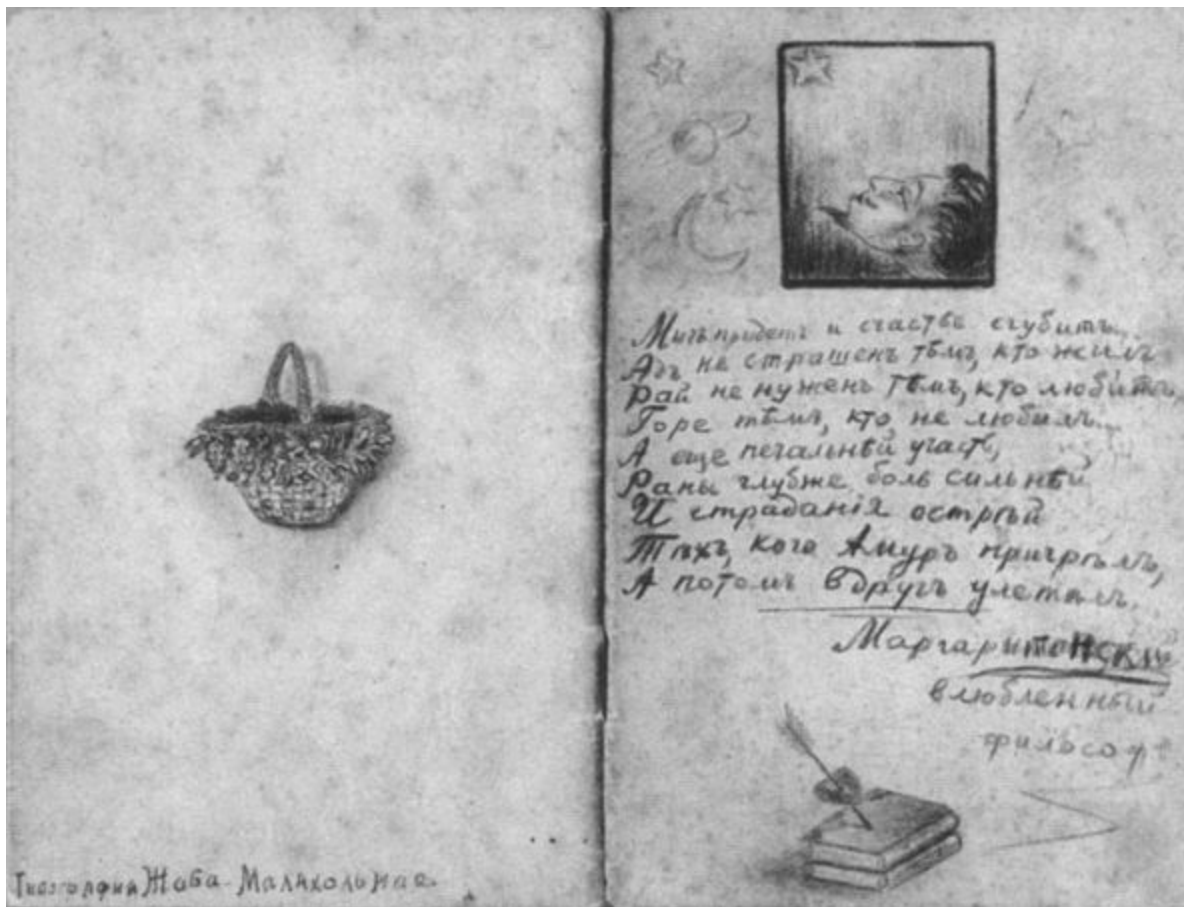 Жаба Малахольная.
Мигъ придетъ и счастье сгубитъ...
Адъ не страшенъ тѣмъ, кто жилъ
Рай не нуженъ тѣмъ, кто любитъ,
Горе тѣмъ, кто не любилъ...
А еще печальнѣй участь,
Раны глубже боль сильнѣй
И страданія острѣй
Тѣхъ, кого Амуръ пригрѣлъ,
А потомъ вдругъ улеталъ.
Маргаритонскій
влюбленный
философ